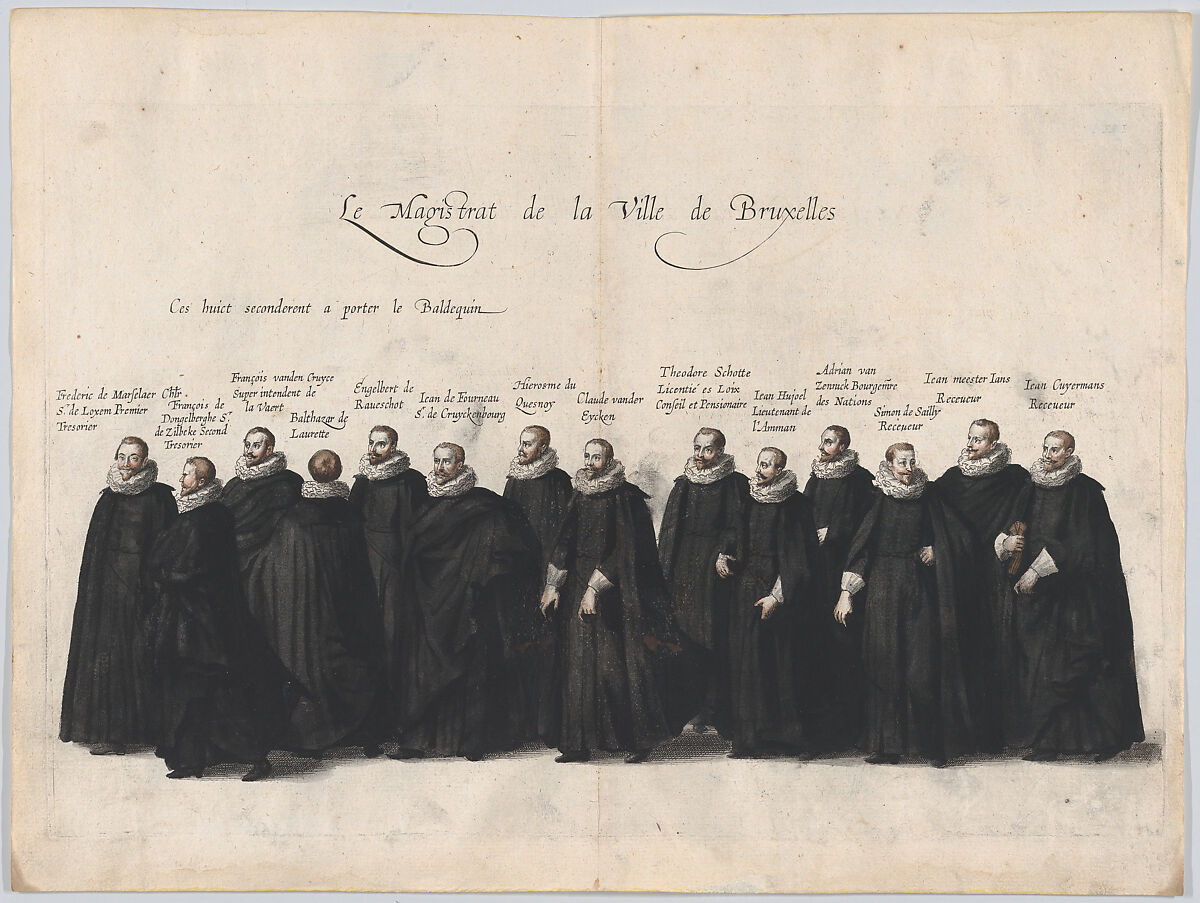 Le Magistrat de la Ville de Bruxelles
Ces huict seconderent a porter le Baldequin
Frederic de Marselaer Chlr.
Sr. de Loxem Premier
Tresorier
François de
Dongelberghe Sr.
de Zilbeke Second
Tresorier
François vanden Cruyce
Super intendent de
la Vaert
Balthazar de
Laurette
Engelbert de
Raueschot
Iean de Fourneau
Sr. de Cruyckenbourg
Hierosme du
Quesnoy
Claude vander
Eycken
Theodore Schotte
Licentié es Loix
Conseil et Pensionaire
Iean Hujoel
Lieutenant de
l'Amman
Adrian van
Zennick Bourgemre
des Nations
Simon de Sailly
Receueur
Iean meester Ians
Receueur
Iean Cuyermans
Receueur